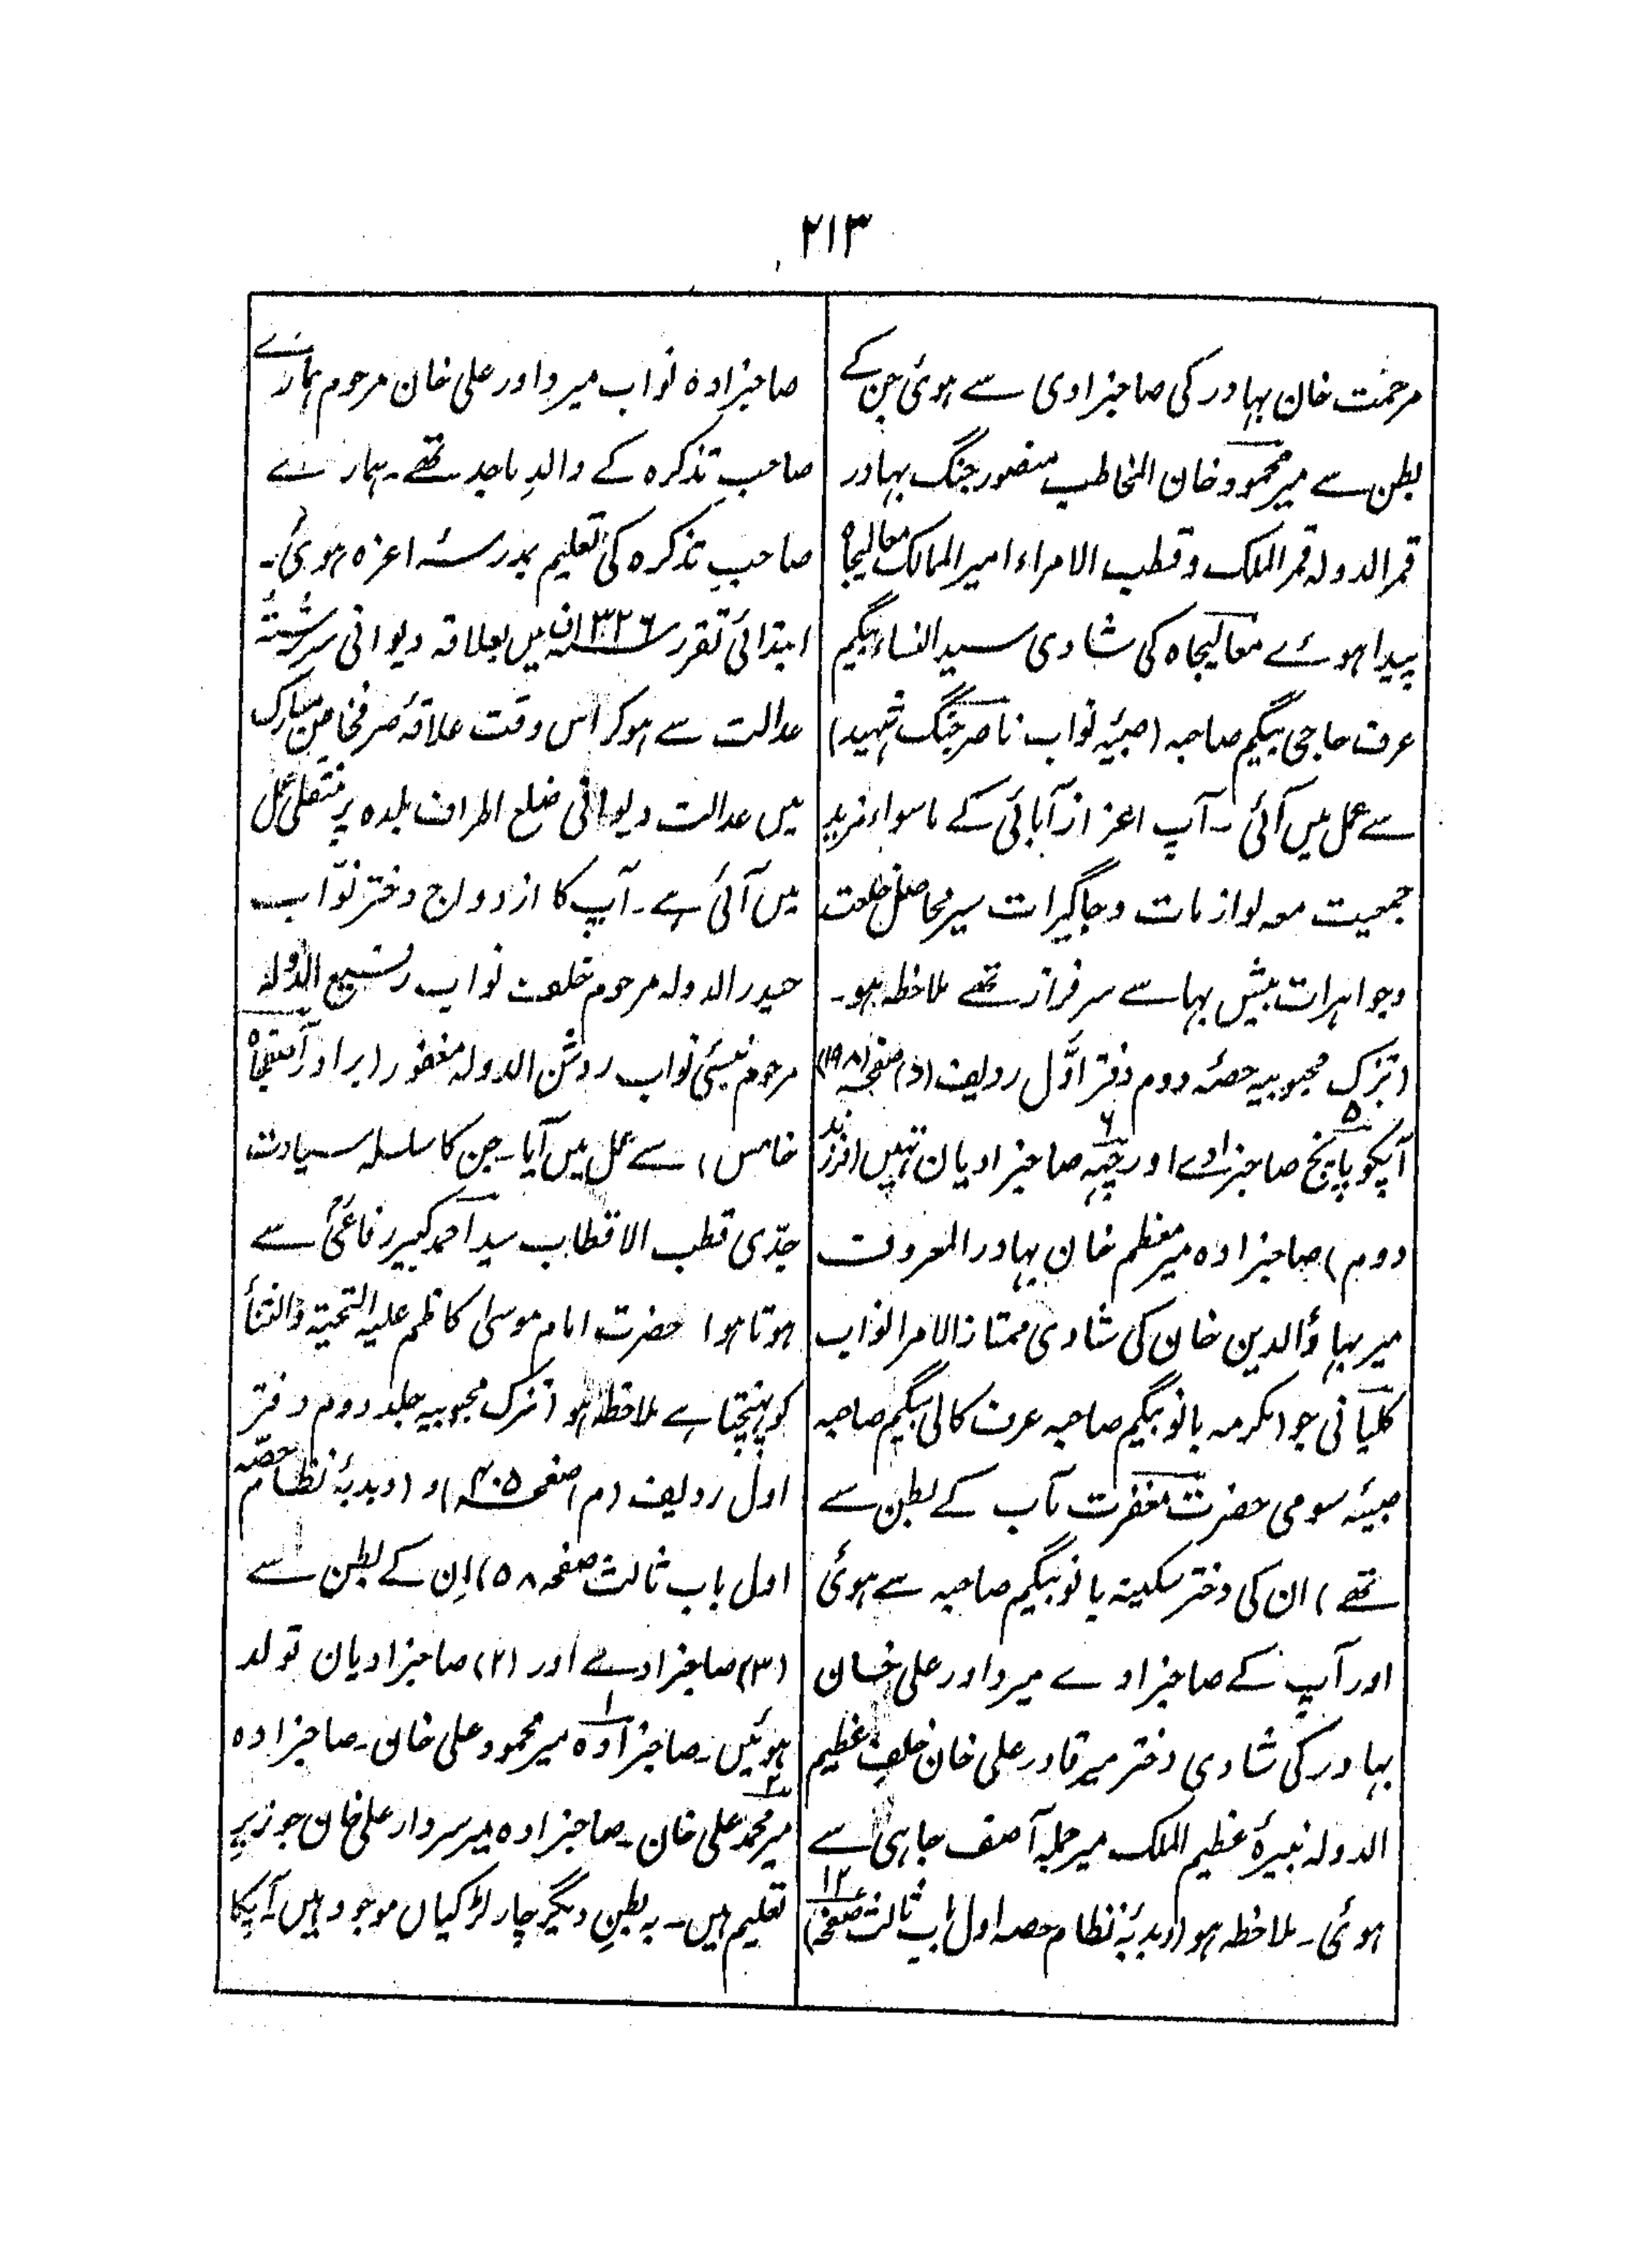 ۲۱۳
مرحمت خان بہادر کی صاحبزادی سے ہوئی جن کے
بطن سے میر محمود خان المخاطب منصور جنگ بہادر
قمر الدولہ قمر الملک و قطب الامراء امیر الممالک معالیجاہ
پیدا ہوئے معالیجاہ کی شادی سید النساء بیگم
عرف حاجی بیگم صاحبہ (صبیۂ نواب ناصر جنگ شہید)
سے عمل میں آئی ۔ آپ اعزاز آبائی کے ماسواء مزید
جمعیت معہ لوازمات و جاگیرات سیر محاصل خلعت
وجواہرات بیش بہا سے سرفراز تھے ملاحظہ ہو۔
(تزک محبوبیہ حصۂ دوم دفتر اوّل ردیف (ف) صفحہ (۱۹۸)
آپکو پانچ ۵ صاحبزادے اور چہہ ۶ صاحبزادیان تہیں (فرزند
دوم) صاحبزادہ میر معظم خان بہادر المعروف
میر بہاؤالدین خان کی شادی ممتاز الامرا نواب
کلیانی جو (مکرمہ بانو بیگم صاحبہ عرف کالی بیگم صاحبہ
صبیۂ سومی حضرت مغفرت مآب کے بطن سے
تھے) ان کی دختر سکینہ بانو بیگم صاحبہ سے ہوئی
اور آپ کے صاحبزادے میر داور علی خان
بہادر کی شادی دختر میر قادر علی خان خلف عظیم
الدولہ نبیرۂ عظیم الملک میر جملہ آصف جاہی سے
ہوئی ۔ ملاحظہ ہو (دبدبۂ نظام حصہ اول باب ثالث صفحہ ۱۲)
صاحبزادہ نواب میر داور علی خان مرحوم ہمارے
صاحبِ تذکرہ کے والدِ ماجد تھے ۔ ہمارے
صاحبِ تذکرہ کی تعلیم بمدرسۂ اعزہ ہوئی۔
ابتدائی تقرر ۱۳۲۶ ف میں بعلاقہ دیوانی سررشتۂ
عدالت سے ہوکر اس وقت علاقۂ صرفخاص مبارک
میں عدالت دیوانی ضلع اطراف بلدہ پر منتقلی عمل
میں آئی ہے ۔ آپ کا ازدواج دختر نوّاب
حیدر الدولہ مرحوم خلف نواب رفیع الدولہ
مرحوم نبسئی نواب روشن الدولہ مغفور (برادر آصفجاہ
خامس) سے عمل میں آیا ۔ جن کا سلسلہ سیادت
جدّی قطب الاقطاب سید احمد کبیر رفاعیؒ سے
ہوتا ہوا حضرت امام موسیٰ کاظم علیہ التحیۃ والثنأ
کو پہنچتا ہے ملاحظہ ہو (تزک محبوبیہ جلد دوم دفتر
اول ردیف (م) صفحہ ۴۰۵) و (دبدبۂ نظام حصّہ
اول باب ثالث صفحہ ۵۸) اِن کے بطن سے
(۳) صاحبزادے اور (۲) صاحبزادیان تولد
ہوئیں ۔ صاحبزادہ ۱ میر محمود علی خان ۔ صاحبزادہ
۲ میر محمد علی خان ۔ صاحبزادہ میر سردار علی خان جو زیرِ
تعلیم ہیں ۔ بہ بطنِ دیگر چار لڑکیاں موجود ہیں ۔ آپکا